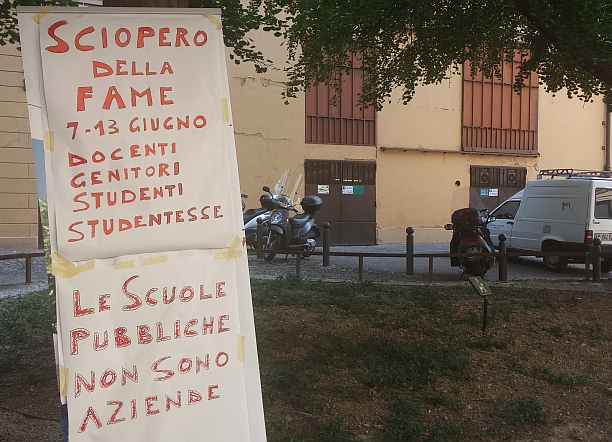 SCIOPERO
DELLA
FAME
7-13 GIUGNO
DOCENTI
GENITORI
STUDENTI
STUDENTESSE
LE SCUOLE
PUBBLICHE
NON SONO
AZIENDE